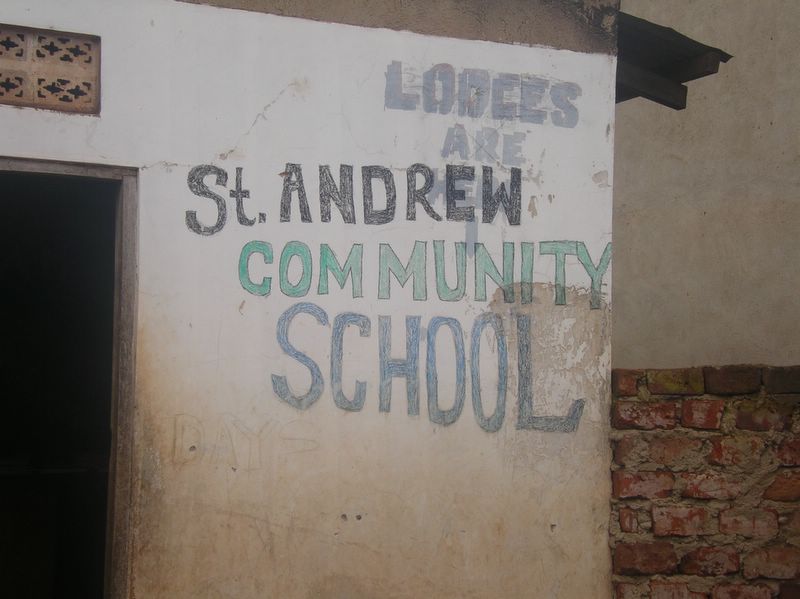 LODEES
ARE
St. ANDREW
COMMUNITY
SCHOOL
DAYS